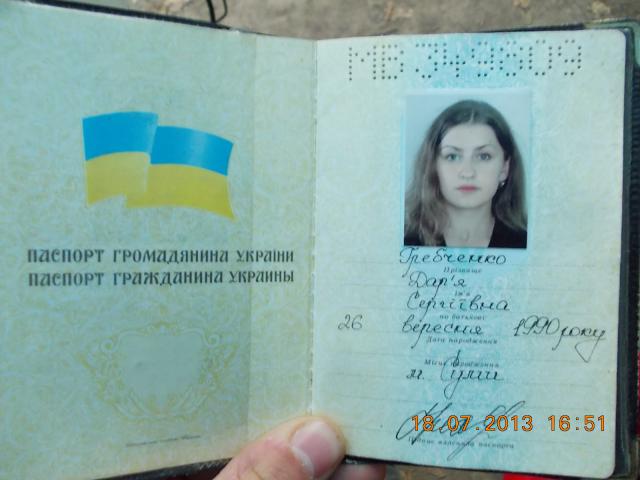 ПАСПОРТ ГРОМАДЯНИНА УКРАЇНИ
ПАСПОРТ ГРАЖДАНИНА УКРАИНЫ
МВ 349609
Гребченко
Прізвище
Дар'я
Ім'я
Сергіївна
по батькові
26 вересня 1990 року
Дата народження
Місце народження
м. Суми
18.07.2013 16:51
Підпис власника паспорта